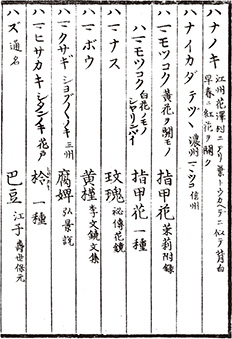 ハナノキ 江州花澤村ニアリ葉トウカヘデニ似テ背白
早春ニ紅花ヲ開ク
ハナイカダ テツヽ 濃州 マヽツコ 信州
ハマモツコク 黄花ヲ開モノ 指甲花 茉莉附錄
ハマモツコク 白花ノモノ シヤリンバイ 指甲花 一種
ハマナス 玫瑰 祕傳花鏡
ハマボウ 黄槿 李文鏡文集
ハマクサギ シヨブクノキ 三州 腐婢 弘景說
ハマヒサカキ 花戶 柃 一種
ハズ 通名 巴豆 江子 壽世保元